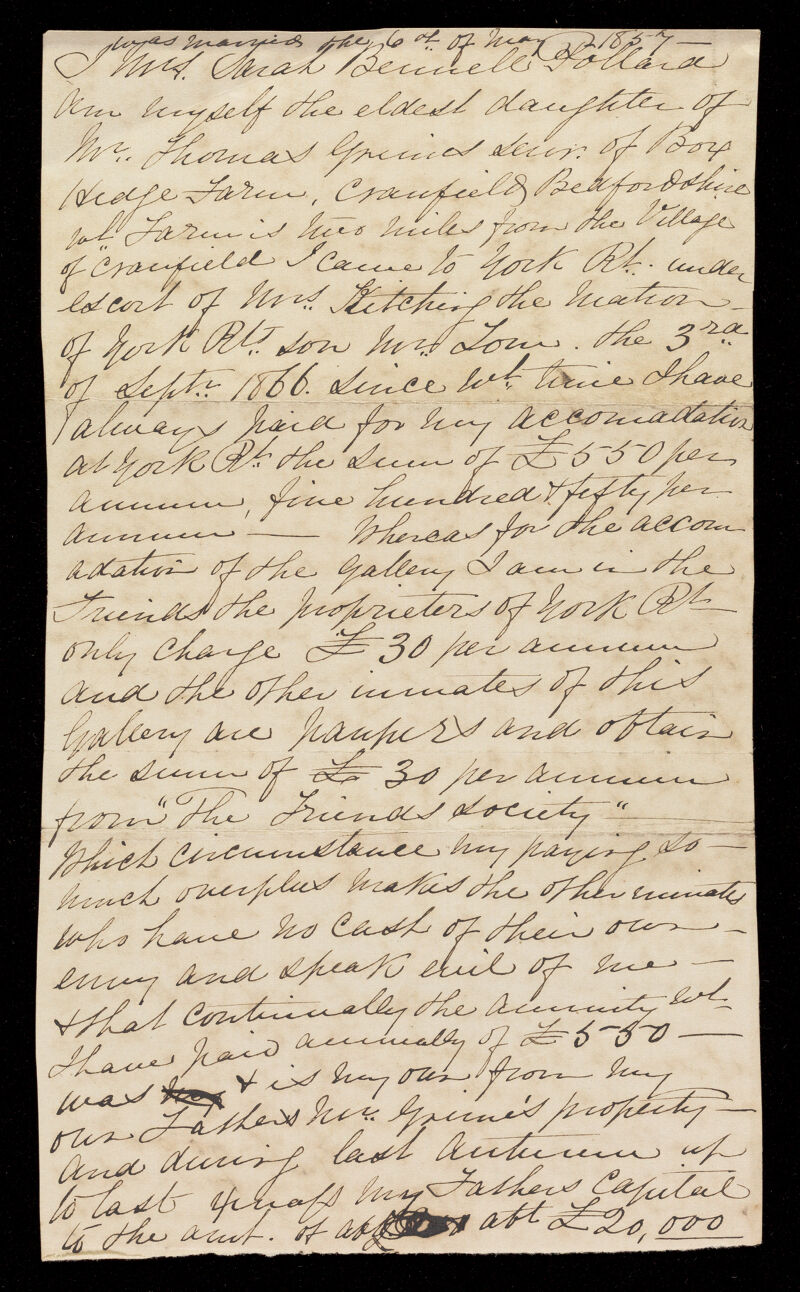 was married the 6th of May 1857 —
I Mrs. Sarah Bennell Pollard
am myself the eldest daughter of
Mr. Thomas Grimes Senr. of Box
Hedge Farm, Cranfield Bedfordshire
wh. Farm is two miles from the Village
of Cranfield I came to York Rt. under
escort of Mrs. Kitching the Matron —
of York Rts. son Mr. Tom. the 3rd
of Septr. 1866. since wh. time I have
always paid for my accomadation
at York Rt. the sum of £550 per
annum, five hundred & fifty per
annum — Whereas for the accom
adation of the Gallery I am in the
Friends the proprieters of York Rt —
only charge £30 per annum
and the other inmates of this
Gallery are paupers and obtain
the sum of £30 per annum
from "The Friends Society"
Which circumstance my paying so —
much overplus makes the other inmates
who have no cash of their own —
envy and speak evil of me —
& that continually the annuity wh.
I have paid annually of £550 —
was & is my own from my
own Fathers Mr. Grime's property —
and during last Autumn up
to last Xmass my Fathers Capital
to the amt. of abt £20,000